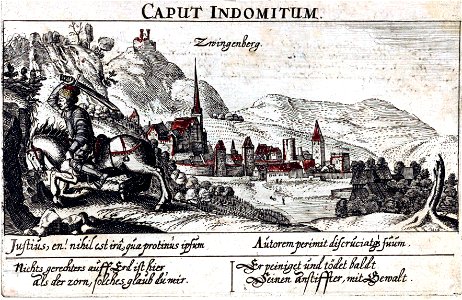 CAPUT INDOMITUM.
Zwingenberg.
Justius, en! nihil est irâ, quæ protinus ipsum
Autorem perimit discruciatq́ suum.
Nichts gerechters auff Erd ist hier
als der zorn, solches glaub du mir.
Er peiniget und tödet baldt
Seinen anstiffter, mit Gewalt.